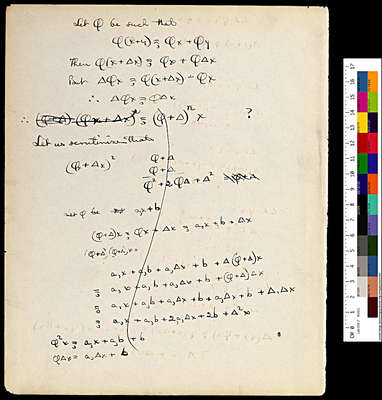 Let φ be such that
φ(x+y) = φx + φy
Then φ(x+Δx) = φx + φΔx
But Δφx = φ(x+Δx) − φx
∴ Δφx = φΔx
∴ (φ+Δ)ⁿ x ?
Let us scrutinize this
(φ+Δx)²
φ+Δ
φ+Δ
φ²+2φΔ+Δ²
Let φ be ax+b
(φ+Δ)x = φx+Δx = a,x+b+Δx
(φ+Δ)(φ+Δ)x =
a,x + a,b + a,Δx + b + Δ(φ+Δ)x
= a,x + a,b + a,Δx + b + (φ+Δ)Δx
= a,x + a,b + a,Δx + b + a,Δx + b + Δ.Δx
= a,x + a,b + 2a,Δx + 2b + Δ²x
φ²x = a,x + a,b + b
φΔx = a,Δx + b